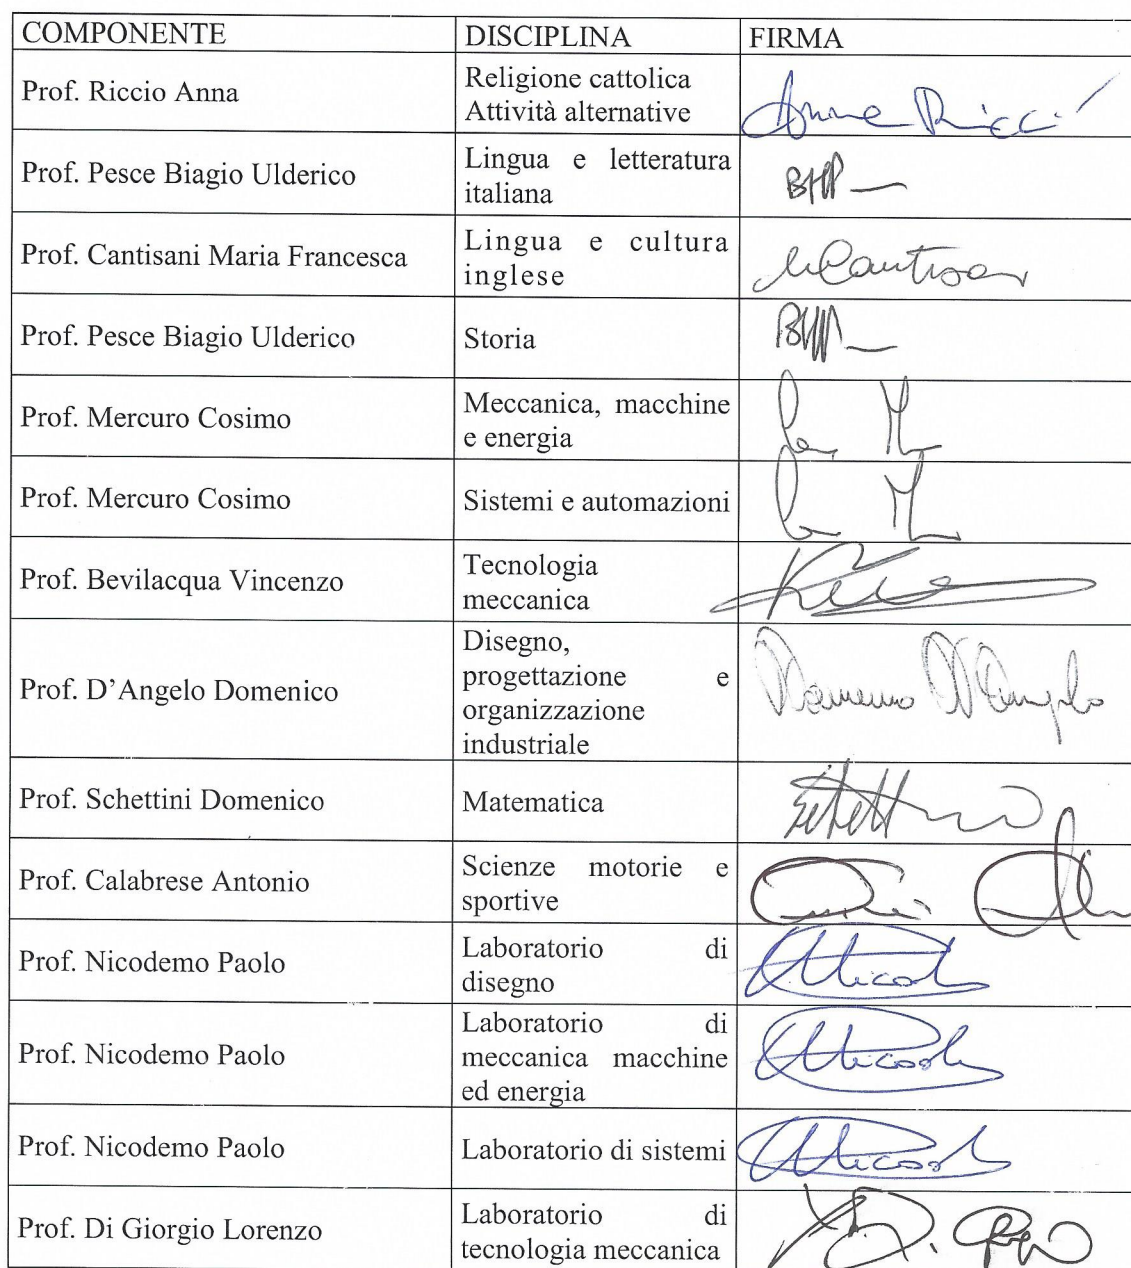 COMPONENTE DISCIPLINA FIRMA
Prof. Riccio Anna Religione cattolica
Attività alternative
Prof. Pesce Biagio Ulderico Lingua e letteratura
italiana
Prof. Cantisani Maria Francesca Lingua e cultura
inglese
Prof. Pesce Biagio Ulderico Storia
Prof. Mercuro Cosimo Meccanica, macchine
e energia
Prof. Mercuro Cosimo Sistemi e automazioni
Prof. Bevilacqua Vincenzo Tecnologia
meccanica
Prof. D’Angelo Domenico Disegno,
progettazione e
organizzazione
industriale
Prof. Schettini Domenico Matematica
Prof. Calabrese Antonio Scienze motorie e
sportive
Prof. Nicodemo Paolo Laboratorio di
disegno
Prof. Nicodemo Paolo Laboratorio di
meccanica macchine
ed energia
Prof. Nicodemo Paolo Laboratorio di sistemi
Prof. Di Giorgio Lorenzo Laboratorio di
tecnologia meccanica